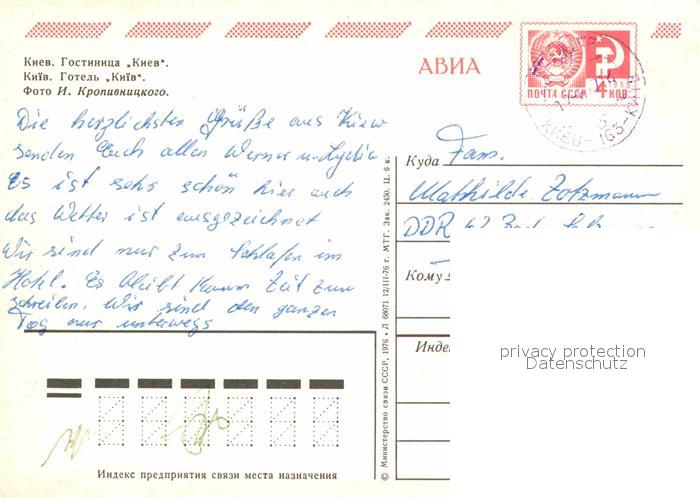 Киев. Гостиница „Киев“.
Київ. Готель „Київ“.
Фото И. Кропивницкого.
АВИА
ПОЧТА СССР 4 КОП.
1966
КИЕВ-163
Die herzlichsten Grüße aus Kiew
senden Euch allen Werner u. Lydia
Es ist sehr schön hier auch
das Wetter ist ausgezeichnet
Wir sind nur zum Schlafen im
Hotel. Es bleibt kaum Zeit zum
schreiben. Wir sind den ganzen
Tag nur unterwegs
Куда Fam.
Mathilde Zotzmann
DDR 62 Bad
Кому
Индек
privacy protection
Datenschutz
© Министерство связи СССР, 1976 • Л 68071 12/III-76 г. МТГ. Зак. 2450. Ц. 6 к.
Индекс предприятия связи места назначения